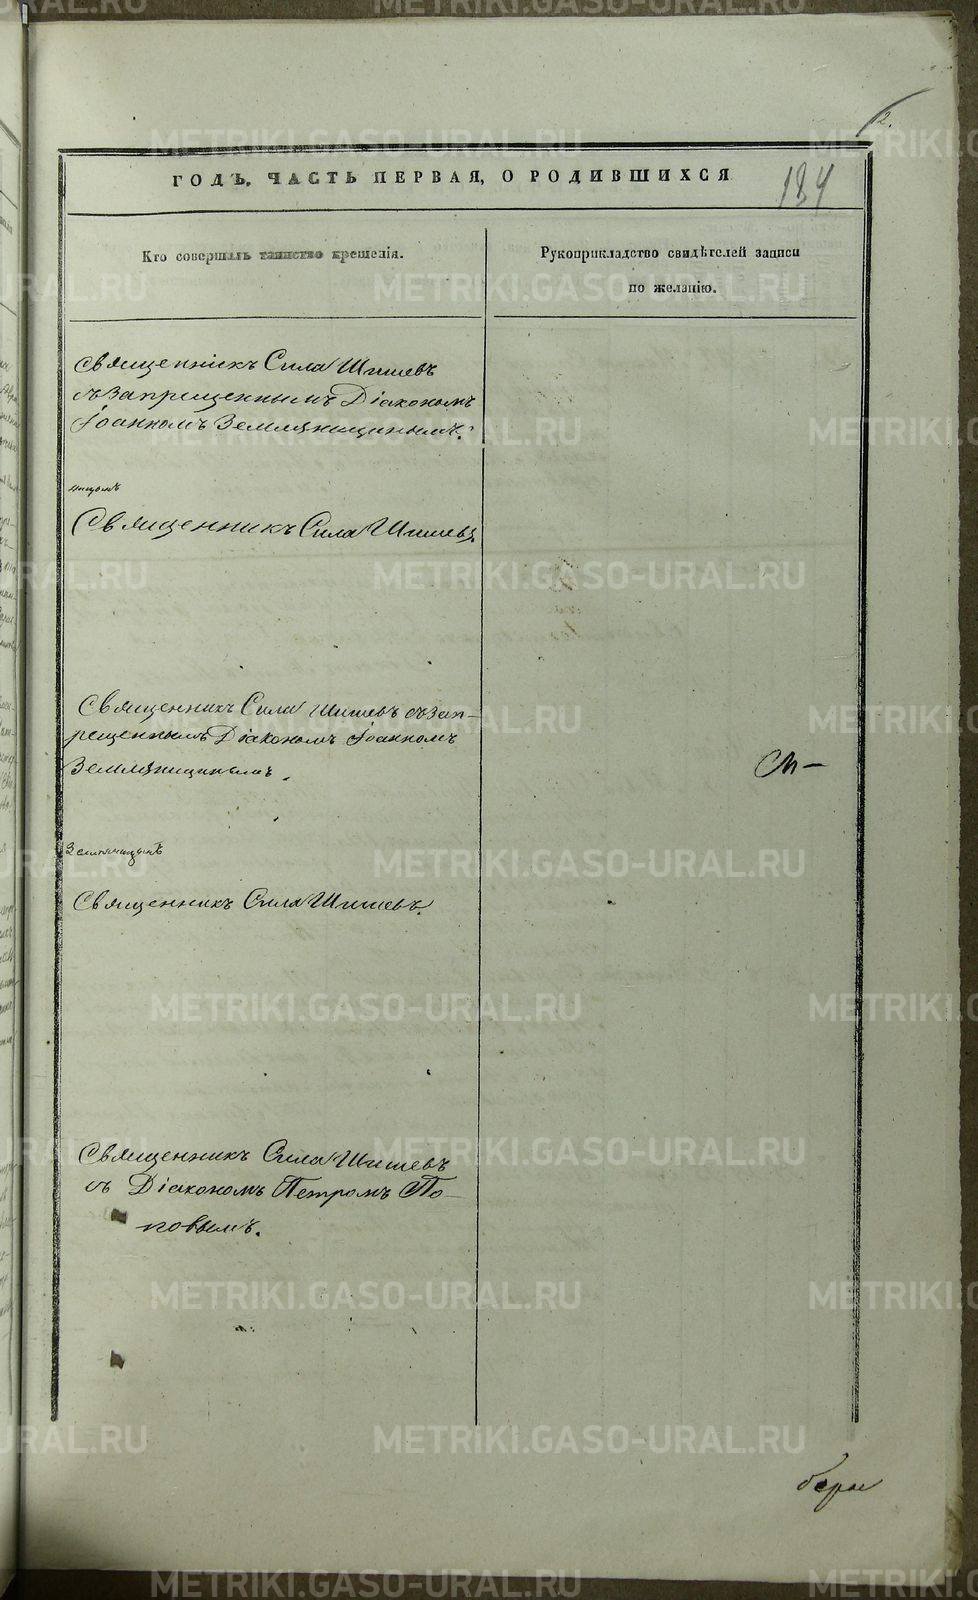 2.
ГОДЪ, ЧАСТЬ ПЕРВАЯ, О РОДИВШИХСЯ
134
Кто совершалъ таинство крещенія.
Рукоприкладство свидѣтелей записи
по желанію.
Священникъ Сила Шишевъ
съ запрещеннымъ Діакономъ
Іоанномъ Земляницынымъ.
ницынъ
Священникъ Сила Шишевъ.
Священникъ Сила Шишевъ съ зап-
рещеннымъ Діакономъ Іоанномъ
Земляницынымъ.
См-
Земляницынъ
Священникъ Сила Шишевъ.
Священникъ Сила Шишевъ
съ Діакономъ Петромъ По-
повымъ.
METRIKI.GASO-URAL.RU